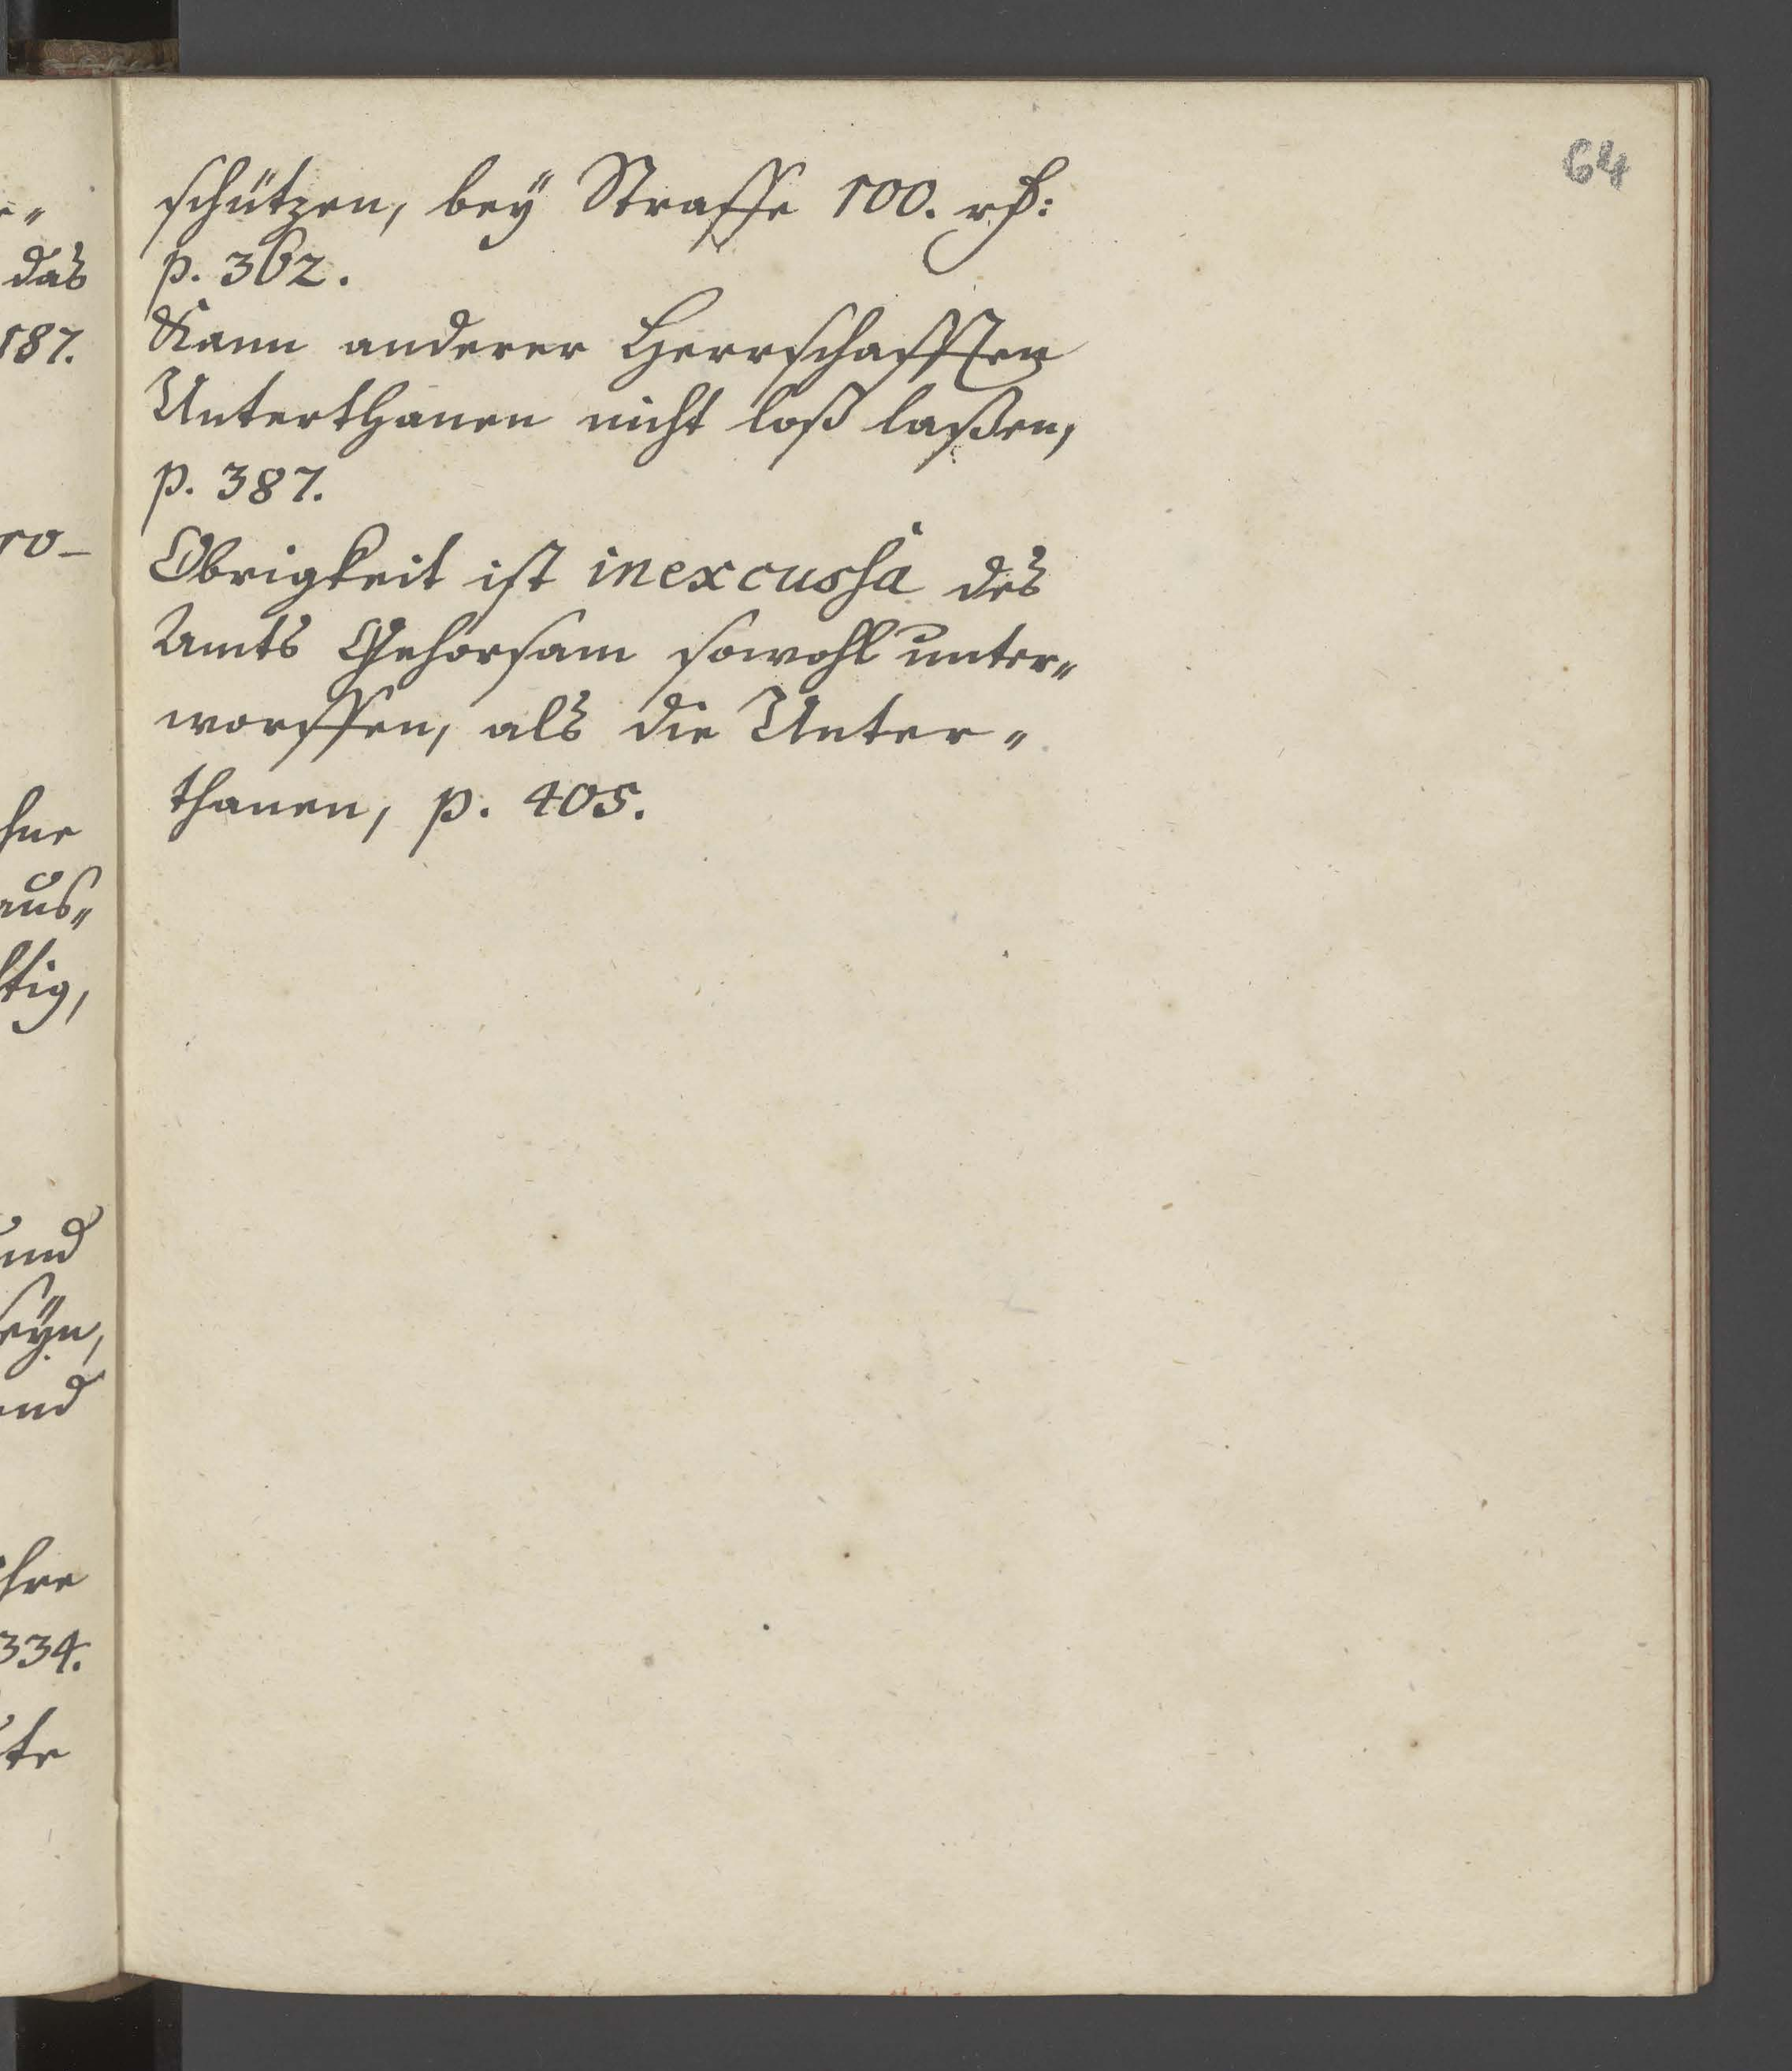 64
schützen, bey Straffe 100. rh:
p. 362.
Kann anderer Herrschafften
Unterthanen nicht loß laßen,
p. 387.
Obrigkeit ist inexcussâ des
Amts Gehorsam sowohl unter„
worffen, als die Unter„
thanen, p. 405.
das
187.
ro-
aus„
tig,
und
seyn,
und
ihre
334.